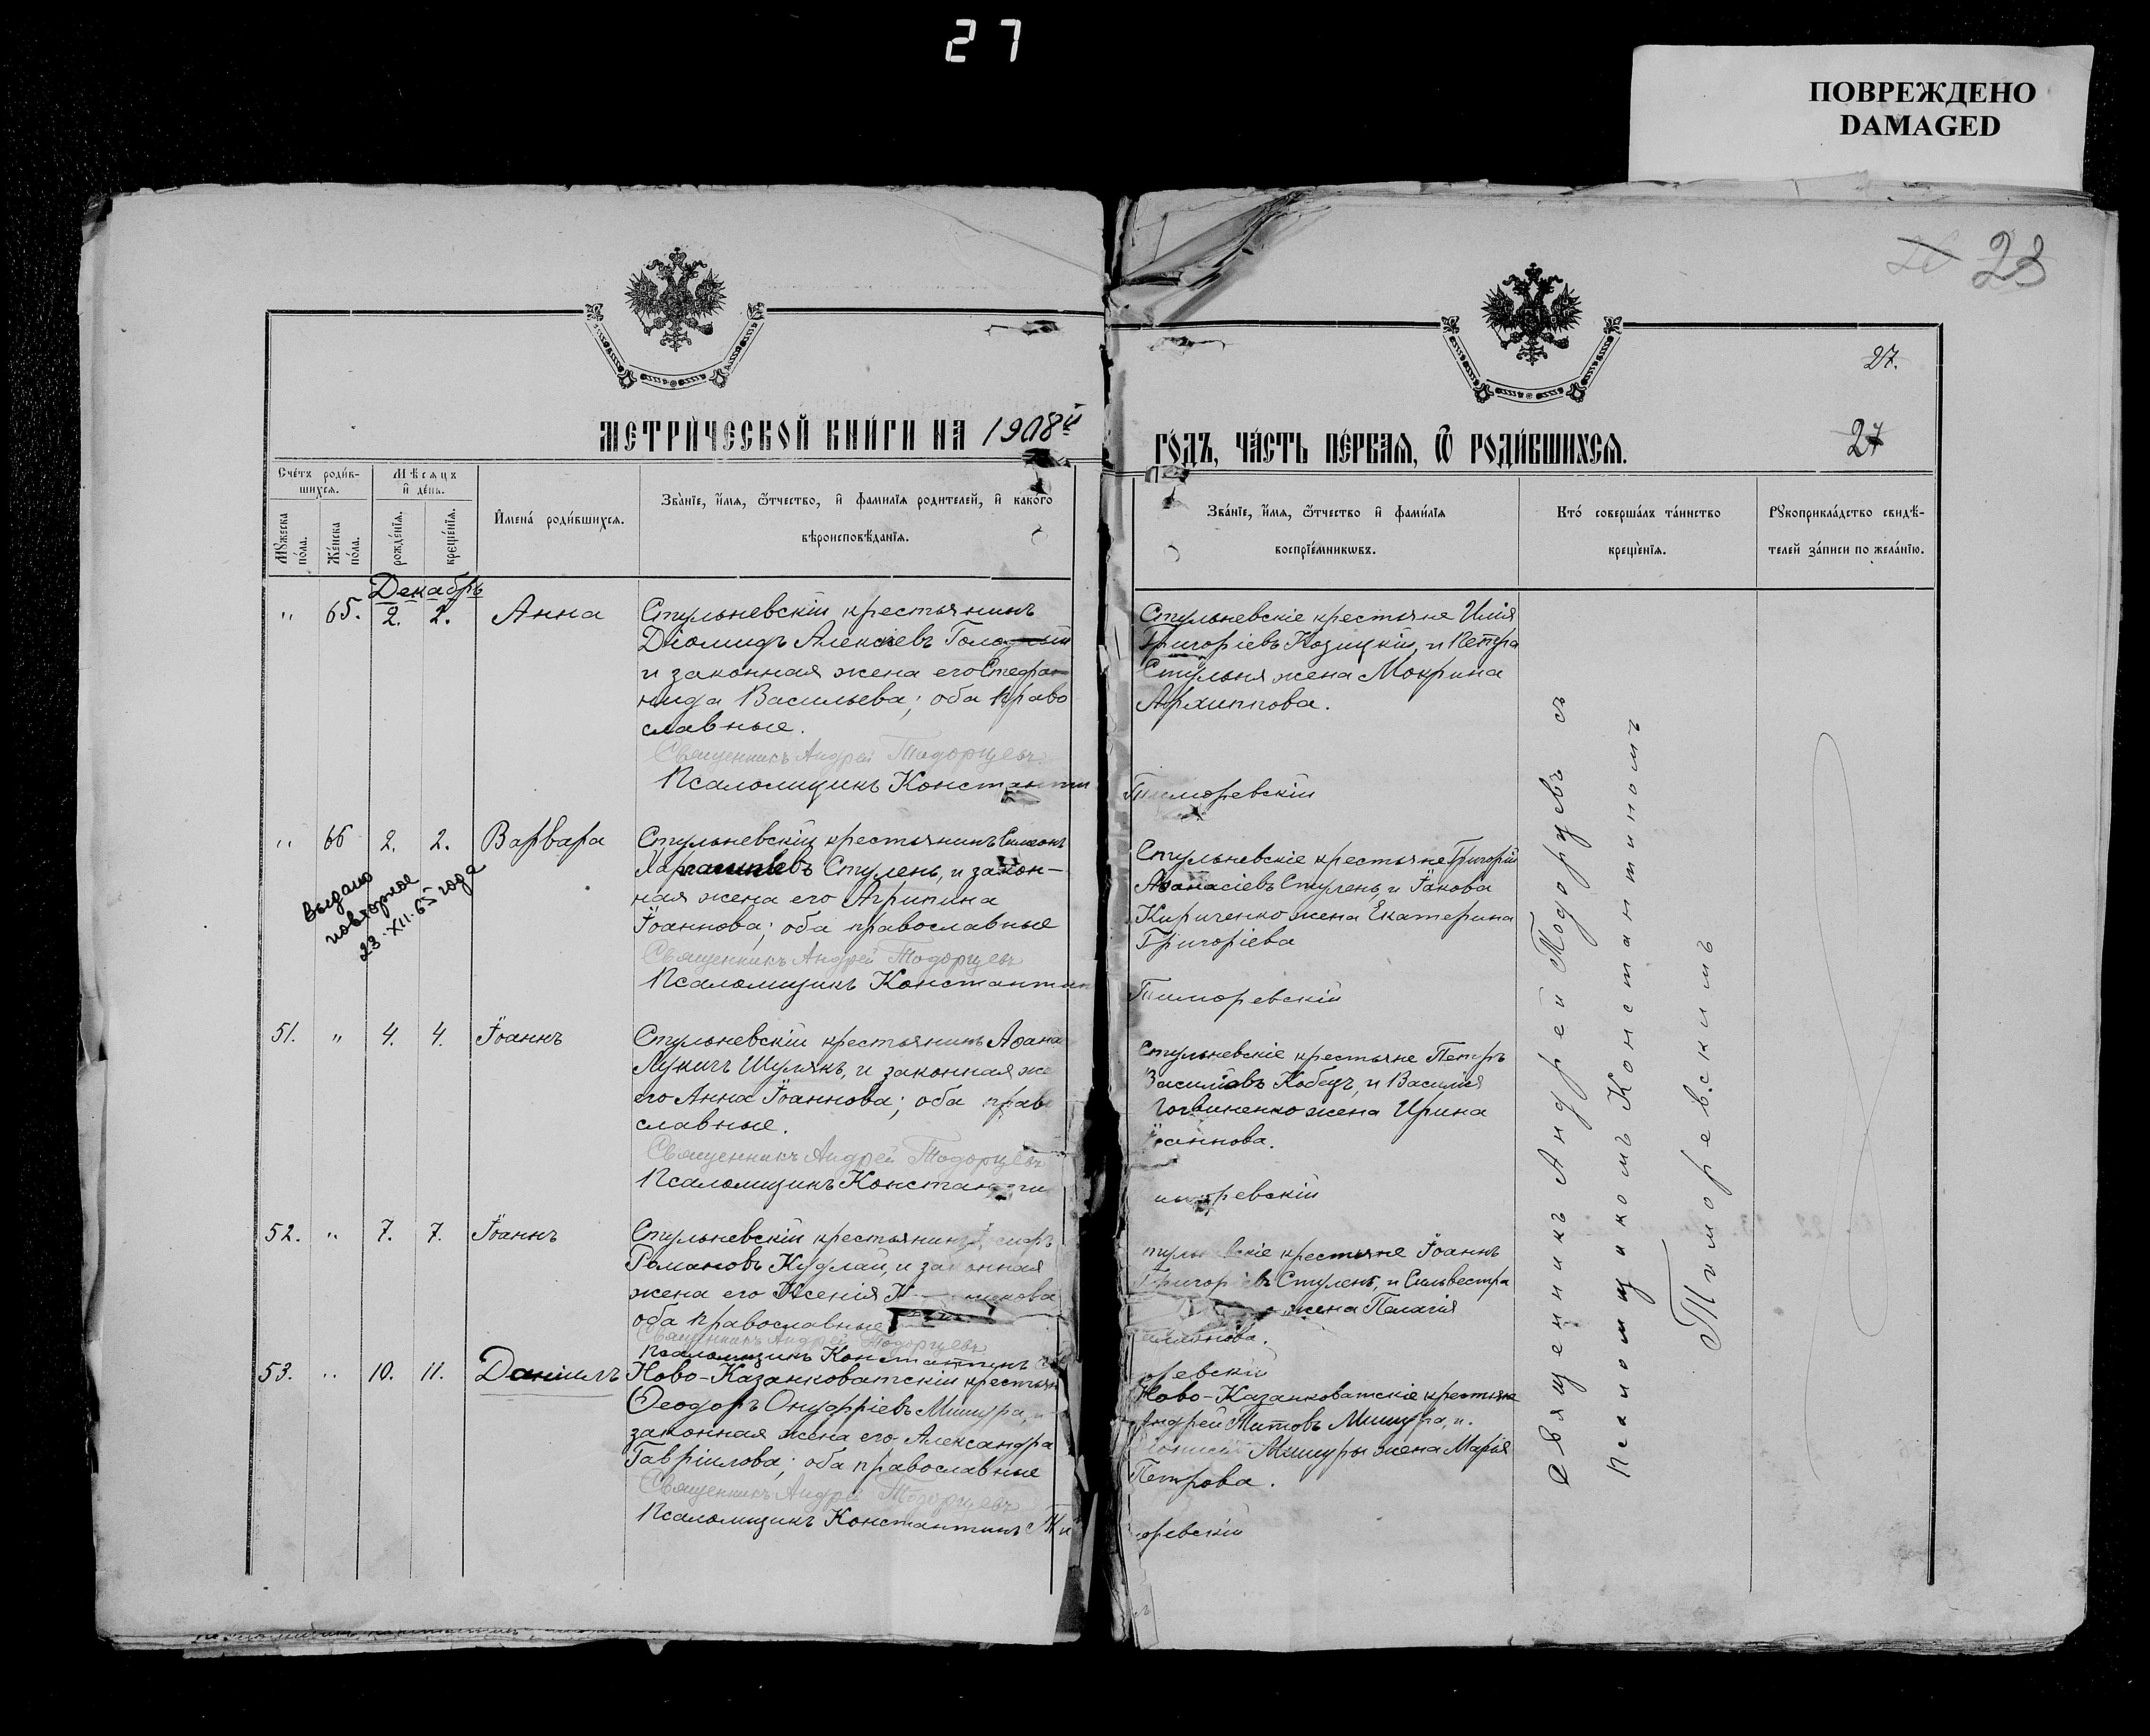 27
ПОВРЕЖДЕНО
DAMAGED
23
27.
27
МЕТРИ́ЧЕСКОЙ КНИ́ГИ НА 1908й
ГО́ДЪ, ЧА́СТЬ ПЕ́РВАЯ, Ѿ РОДИ́ВШИХСЯ.
Сче́тъ роди́в-
шихся.
Мѣсяцъ
и҆ де́нь.
Му́жеска
по́ла.
Же́нска
по́ла.
рожде́нїя.
креще́нїя.
И҆мена̀ роди́вшихся.
Зва́нїе, и҆́мя, ѻ҆́тчество, и҆ фами́лїя роди́телей, и҆ како́го
вѣроисповѣ́данїя.
Зва́нїе, и҆́мя, ѻ҆́тчество и҆ фами́лїя
воспрїе́мниковъ.
Кто́ соверша́лъ та́инство
креще́нїя.
Рꙋкоприкла́дство свидѣ́-
телей за́писи по жела́нїю.
Декабрь
" 65. 2. 2. Анна
Стульневскій крестьянинъ
Діомидъ Алексіевъ
и законная жена его Стефа-
нида Васильева; оба право
славные.
Священникъ Андрей Тодорцевъ
Псаломщикъ Константин
Стульневскіе крестьяне Илія
Григоріевъ Козицкій, и Петра
Стульня жена Мокрина
Архиппова.
Тиморевскій
" 66 2. 2. Варвара
выдано
повторное
23.XII.65 года
Стульневскій крестьянинъ Симеонъ
Стулень, и закон-
ная жена его Агрипина
Іоаннова; оба православные
Священникъ Андрей Тодорцевъ
Псаломщикъ Константин
Стульневскіе крестьяне Григорій
Аѳанасіевъ Стулень, и Іакова
Кириченко жена Екатерина
Григоріева
Тиморевскій
51. " 4. 4. Іоаннъ
Стульневскій крестьянинъ Аѳана
Лукичъ Шулякъ, и законная же
его Анна Іоаннова; оба прав
славные.
Священникъ Андрей Тодорцевъ
Псаломщикъ Константи
Стульневскіе крестьяне Петръ
Василіевъ Кобецъ, и Василія
жена Ирина
Іоаннова.
ревскій
52. " 7. 7. Іоаннъ
Стульневскій крестьянинъ
Романовъ Кудлай, и законная
жена его Ксенія
оба православные
Священникъ Андрей Тодорцевъ
Псаломщикъ Константинъ
крестьяне Іоаннъ
Григоріевъ Стулень, и Сильвестра
жена Пелагія
оревскій
53. " 10. 11. Даніилъ
Ново-Казанковатскій крестьян
Ѳеодоръ Онуфріевъ Мишура, и
законная жена его Александра
Гавріилова; оба православные
Священникъ Андрей Тодорцевъ
Псаломщикъ Константинъ Ти
Ново-Казанковатскіе крестьяне
Андрей Титовъ Мишура, и
Мишуры жена Марія
Петрова.
оревскій
Священникъ Андрей Тодорцевъ съ
псаломщикомъ Константиномъ
Тиморевскимъ